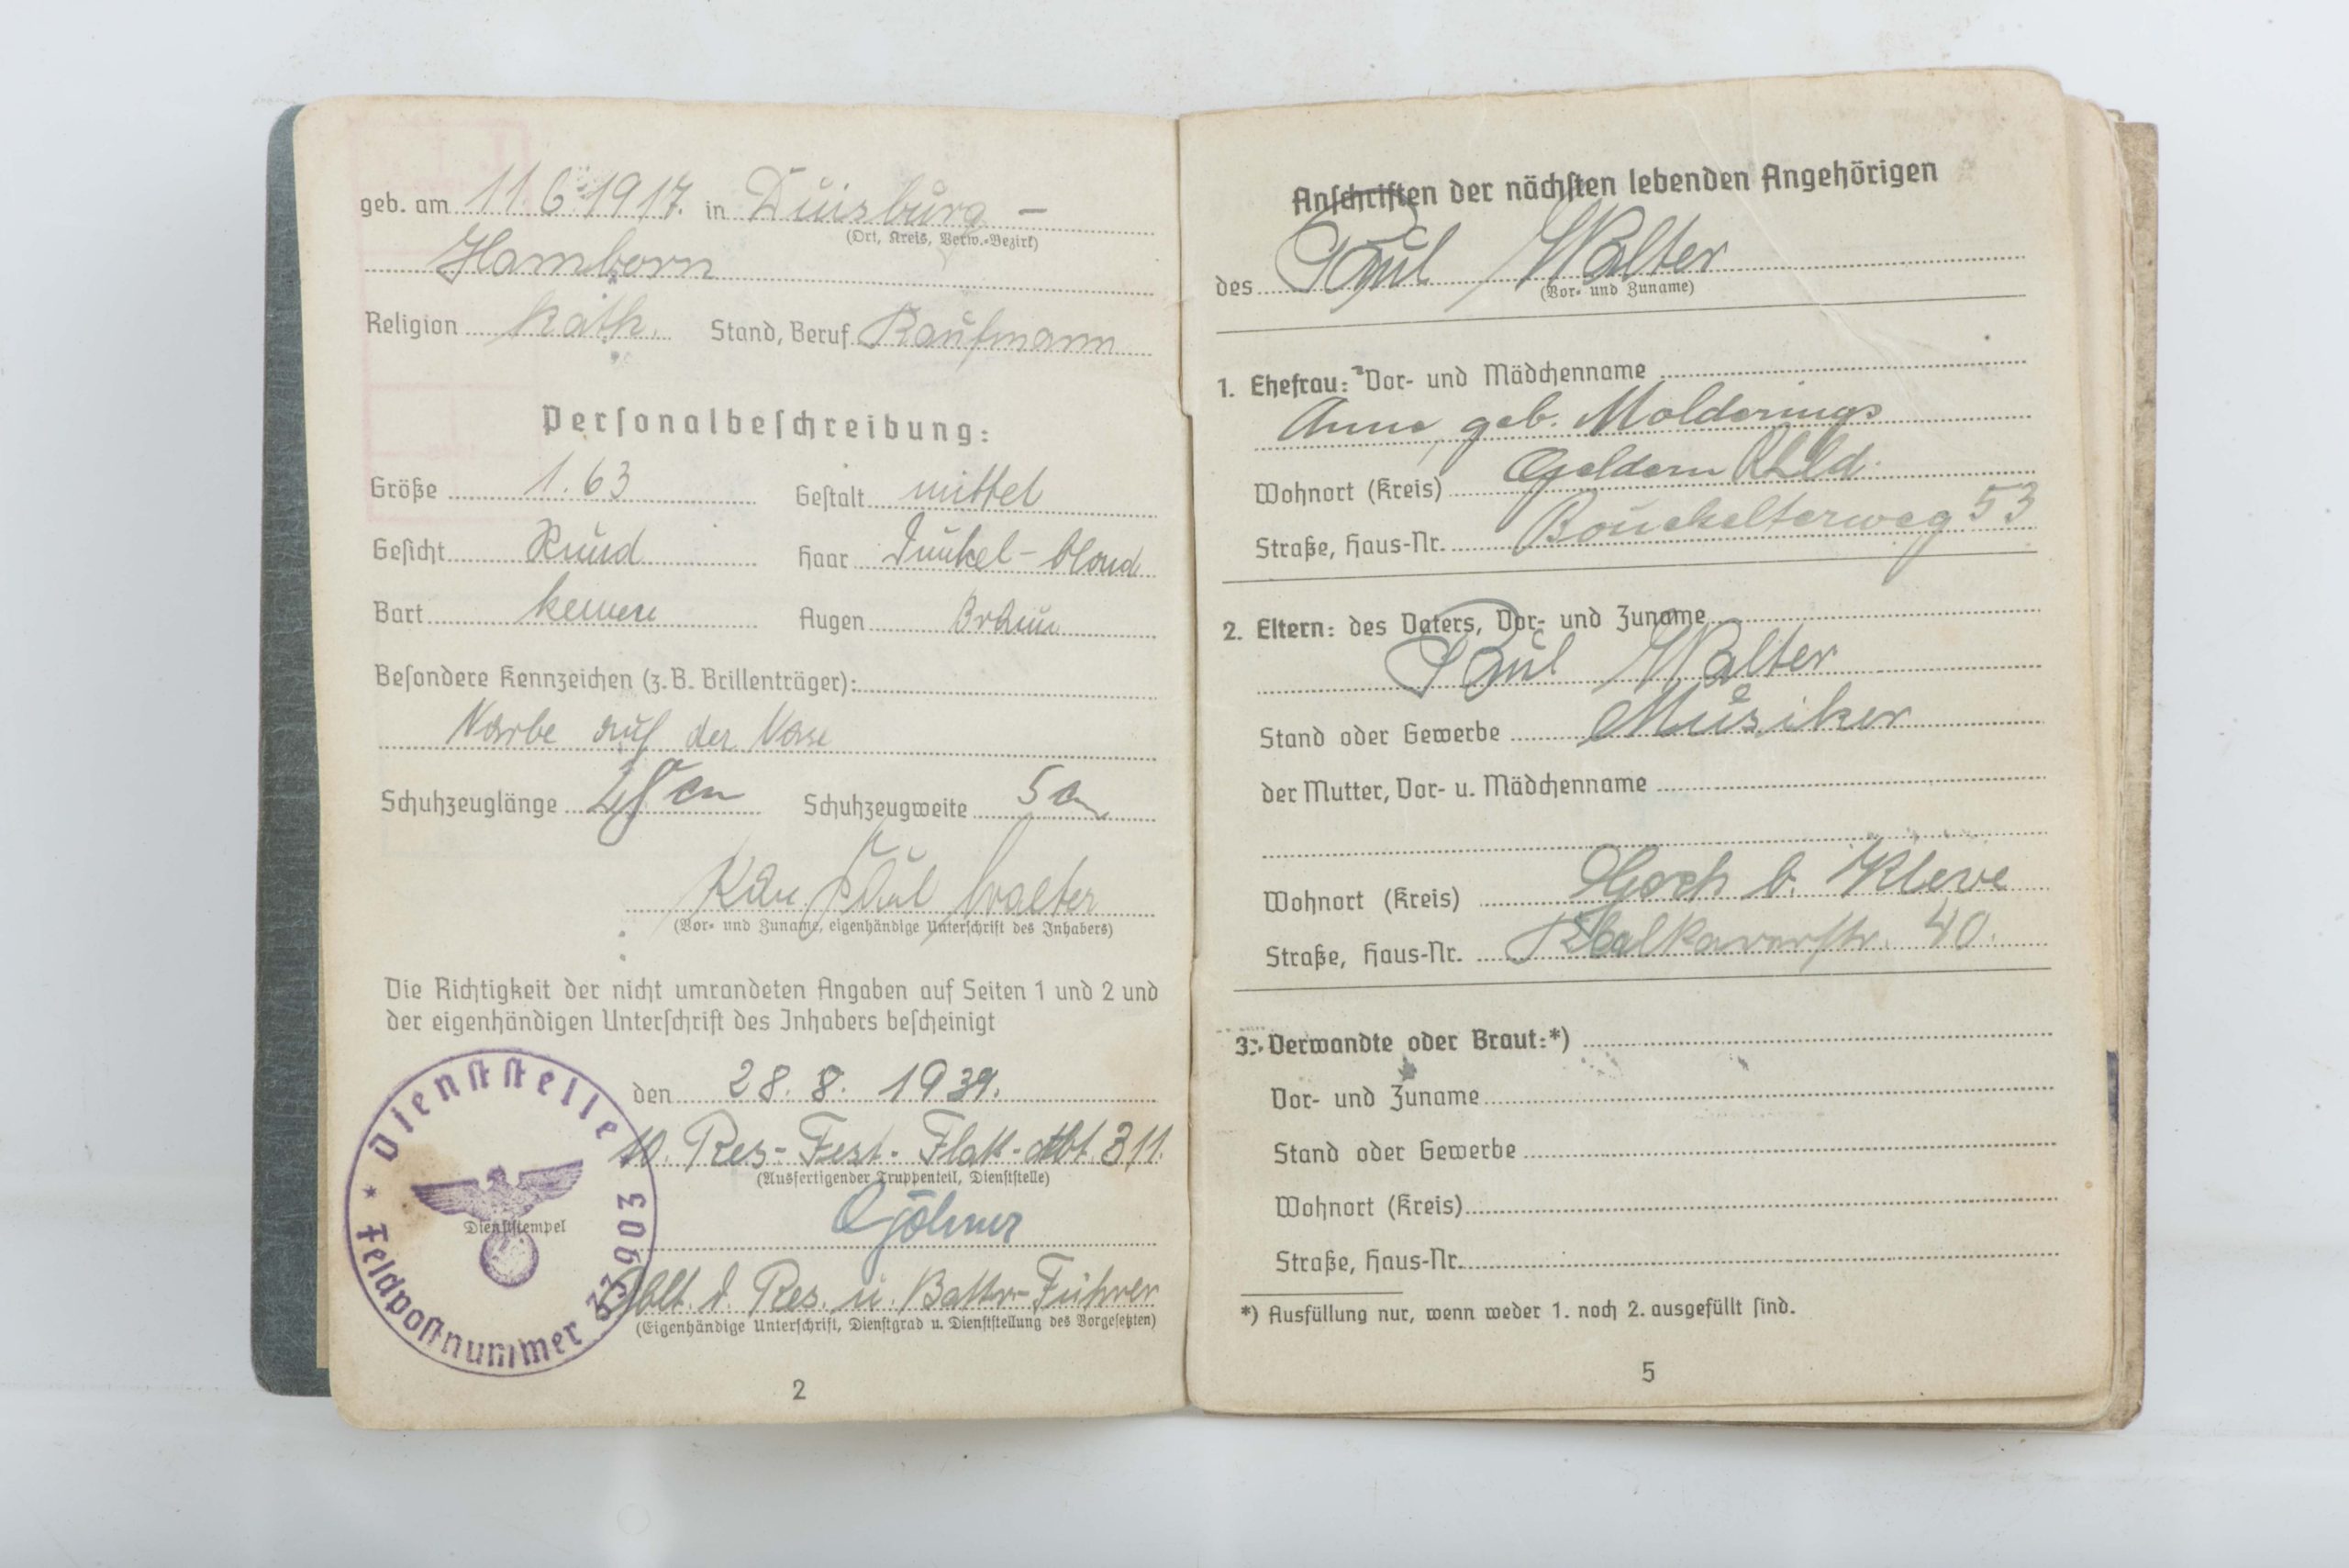 geb. am 11.6.1917. in Duisburg -
(Ort, Kreis, Verw.-Bezirk)
Hamborn
Religion Kath. Stand, Beruf Kaufmann
Personalbeschreibung:
Größe 1.63 Gestalt mittel
Gesicht Rund Haar Dunkel-blond
Bart keinen Augen Braun
Besondere Kennzeichen (z.B. Brillenträger):
Narbe auf der Nase
Schuhzeuglänge cm Schuhzeugweite 5 cm
Paul Walter
(Vor- und Zuname, eigenhändige Unterschrift des Inhabers)
Die Richtigkeit der nicht umrandeten Angaben auf Seiten 1 und 2 und
der eigenhändigen Unterschrift des Inhabers bescheinigt
den 28. 8. 1939.
10. Res-Fest.-Flak-Abt. 311.
(Ausfertigender Truppenteil, Dienststelle)
Dienststelle
Feldpostnummer 33903
Dienststempel
Oblt. d. Res. u. Battr-Führer
(Eigenhändige Unterschrift, Dienstgrad u. Dienststellung des Vorgesetzten)
2
Anschriften der nächsten lebenden Angehörigen
des Paul Walter
(Vor- und Zuname)
1. Ehefrau: Vor- und Mädchenname
Anna, geb. Molderings
Wohnort (Kreis) Geldern Rhld.
Straße, Haus-Nr. 53
2. Eltern: des Vaters, Vor- und Zuname
Paul Walter
Stand oder Gewerbe Musiker
der Mutter, Vor- u. Mädchenname
Wohnort (Kreis) Goch b. Kleve
Straße, Haus-Nr. Kalkarerstr. 40.
3. Verwandte oder Braut:*)
Vor- und Zuname
Stand oder Gewerbe
Wohnort (Kreis)
Straße, Haus-Nr.
*) Ausfüllung nur, wenn weder 1. noch 2. ausgefüllt sind.
5